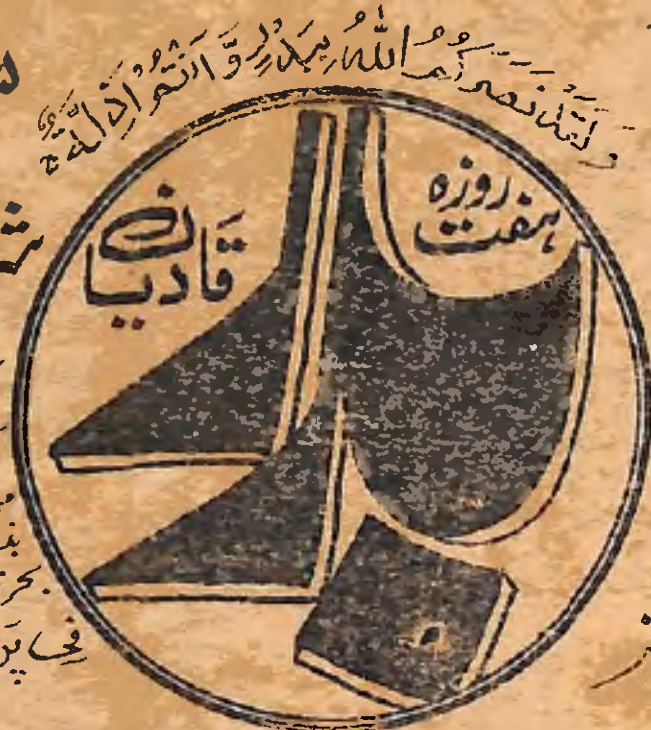 وَلَقَدْ نَصَرَكُمُ اللّٰهُ بِبَدْرٍ وَّاَنْتُمْ اَذِلَّةٌ
ہفت روزہ
بدر
قادیان